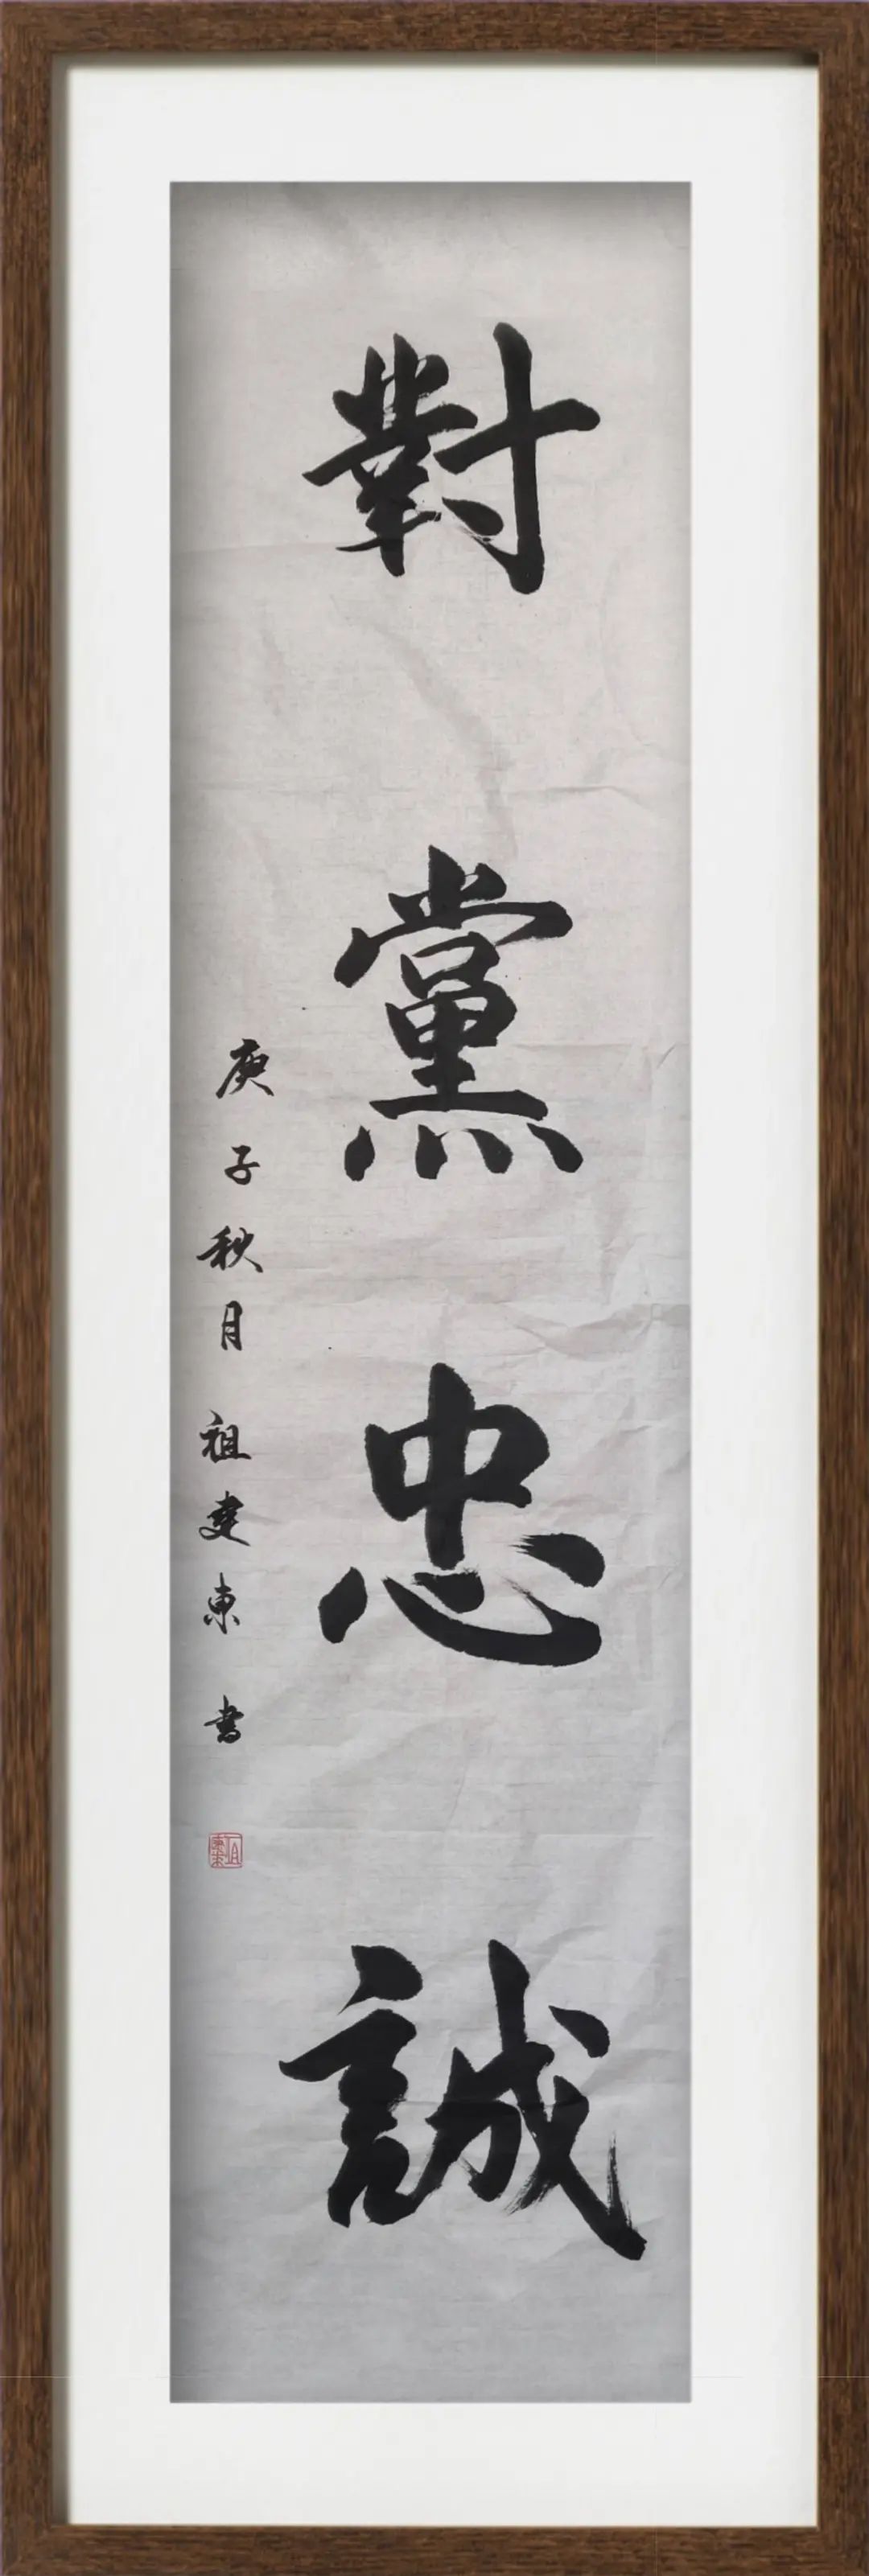 對黨忠誠
庚子秋月 祖建東 書